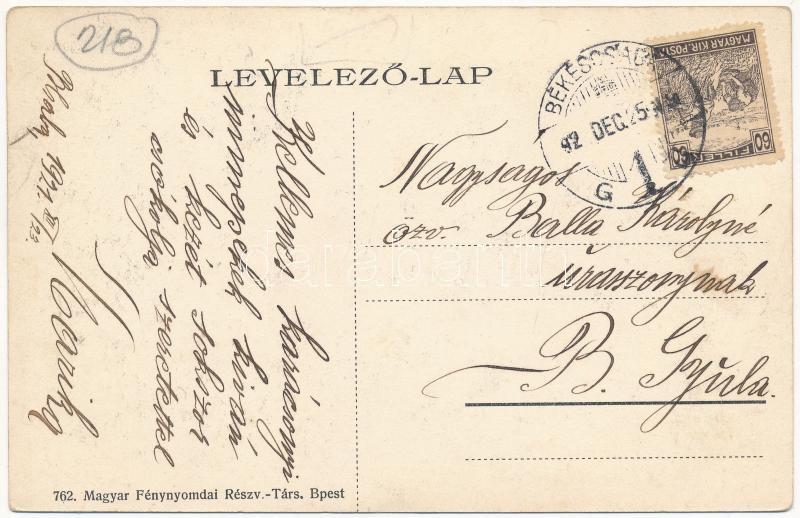 218
LEVELEZŐ-LAP
BÉKÉSCSABA
92 DEC. 25
G 1
MAGYAR KIR. POSTA
60 FILLÉR 60
Nagyságos
özv. Balla Károlyné
úraszonynak
B. Gyula.
Kellemes karácsonyi
ünnepeket kíván
és kezét sokszor
csókolja szeretettel
Mariska
1921 XII/23.
darabanth
762. Magyar Fénynyomdai Részv.-Társ. Bpest